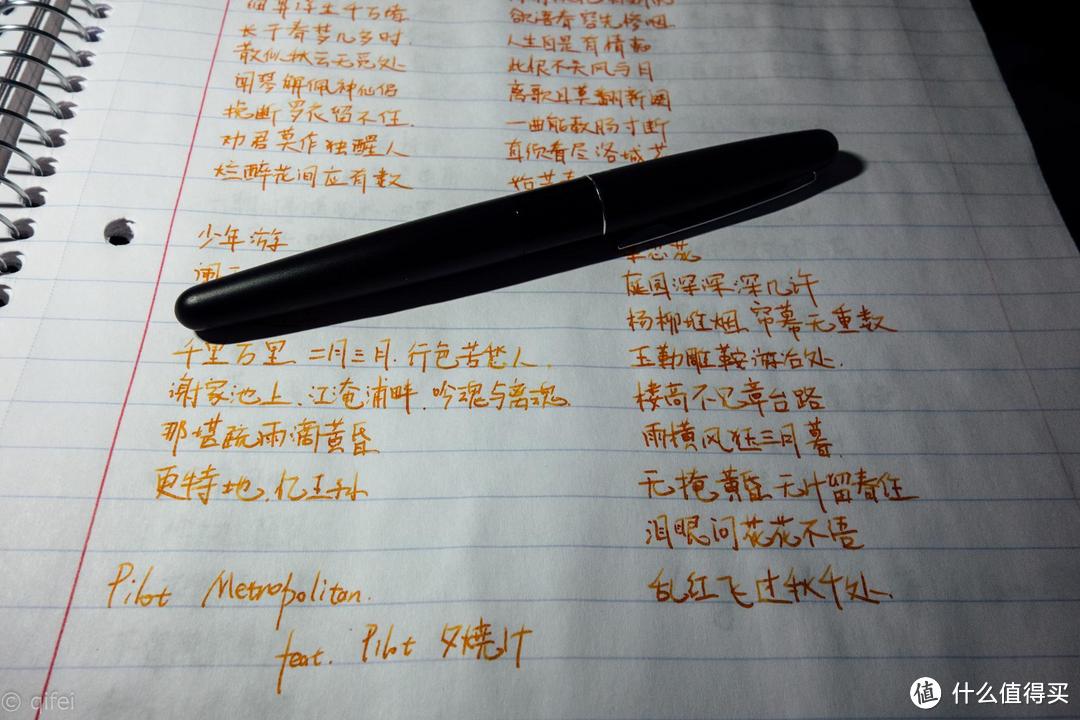 细算浮生千万绪
长于春梦几多时
散似秋云无觅处
闻琴解佩神仙侣
挽断罗衣留不住.
劝君莫作独醒人
烂醉花间应有数
欲语春容先惨咽
人生自是有情痴
此恨不关风与月
离歌且莫翻新阕
一曲能教肠寸断
看尽洛城
少年游
千里万里、二月三月.行色苦愁人.
谢家池上、江淹浦畔.吟魂与离魂.
那堪疏雨滴黄昏
更特地、忆王孙
庭园深深深几许
杨柳堆烟.帘幕无重数
玉勒雕鞍游冶处.
楼高不见章台路
雨横风狂三月暮.
无掩黄昏.无计留春住
泪眼问花花不语
乱红飞过秋千处.
Pilot Metropolitan.
feat. Pilot 夕燒け
© qifei
值 什么值得买